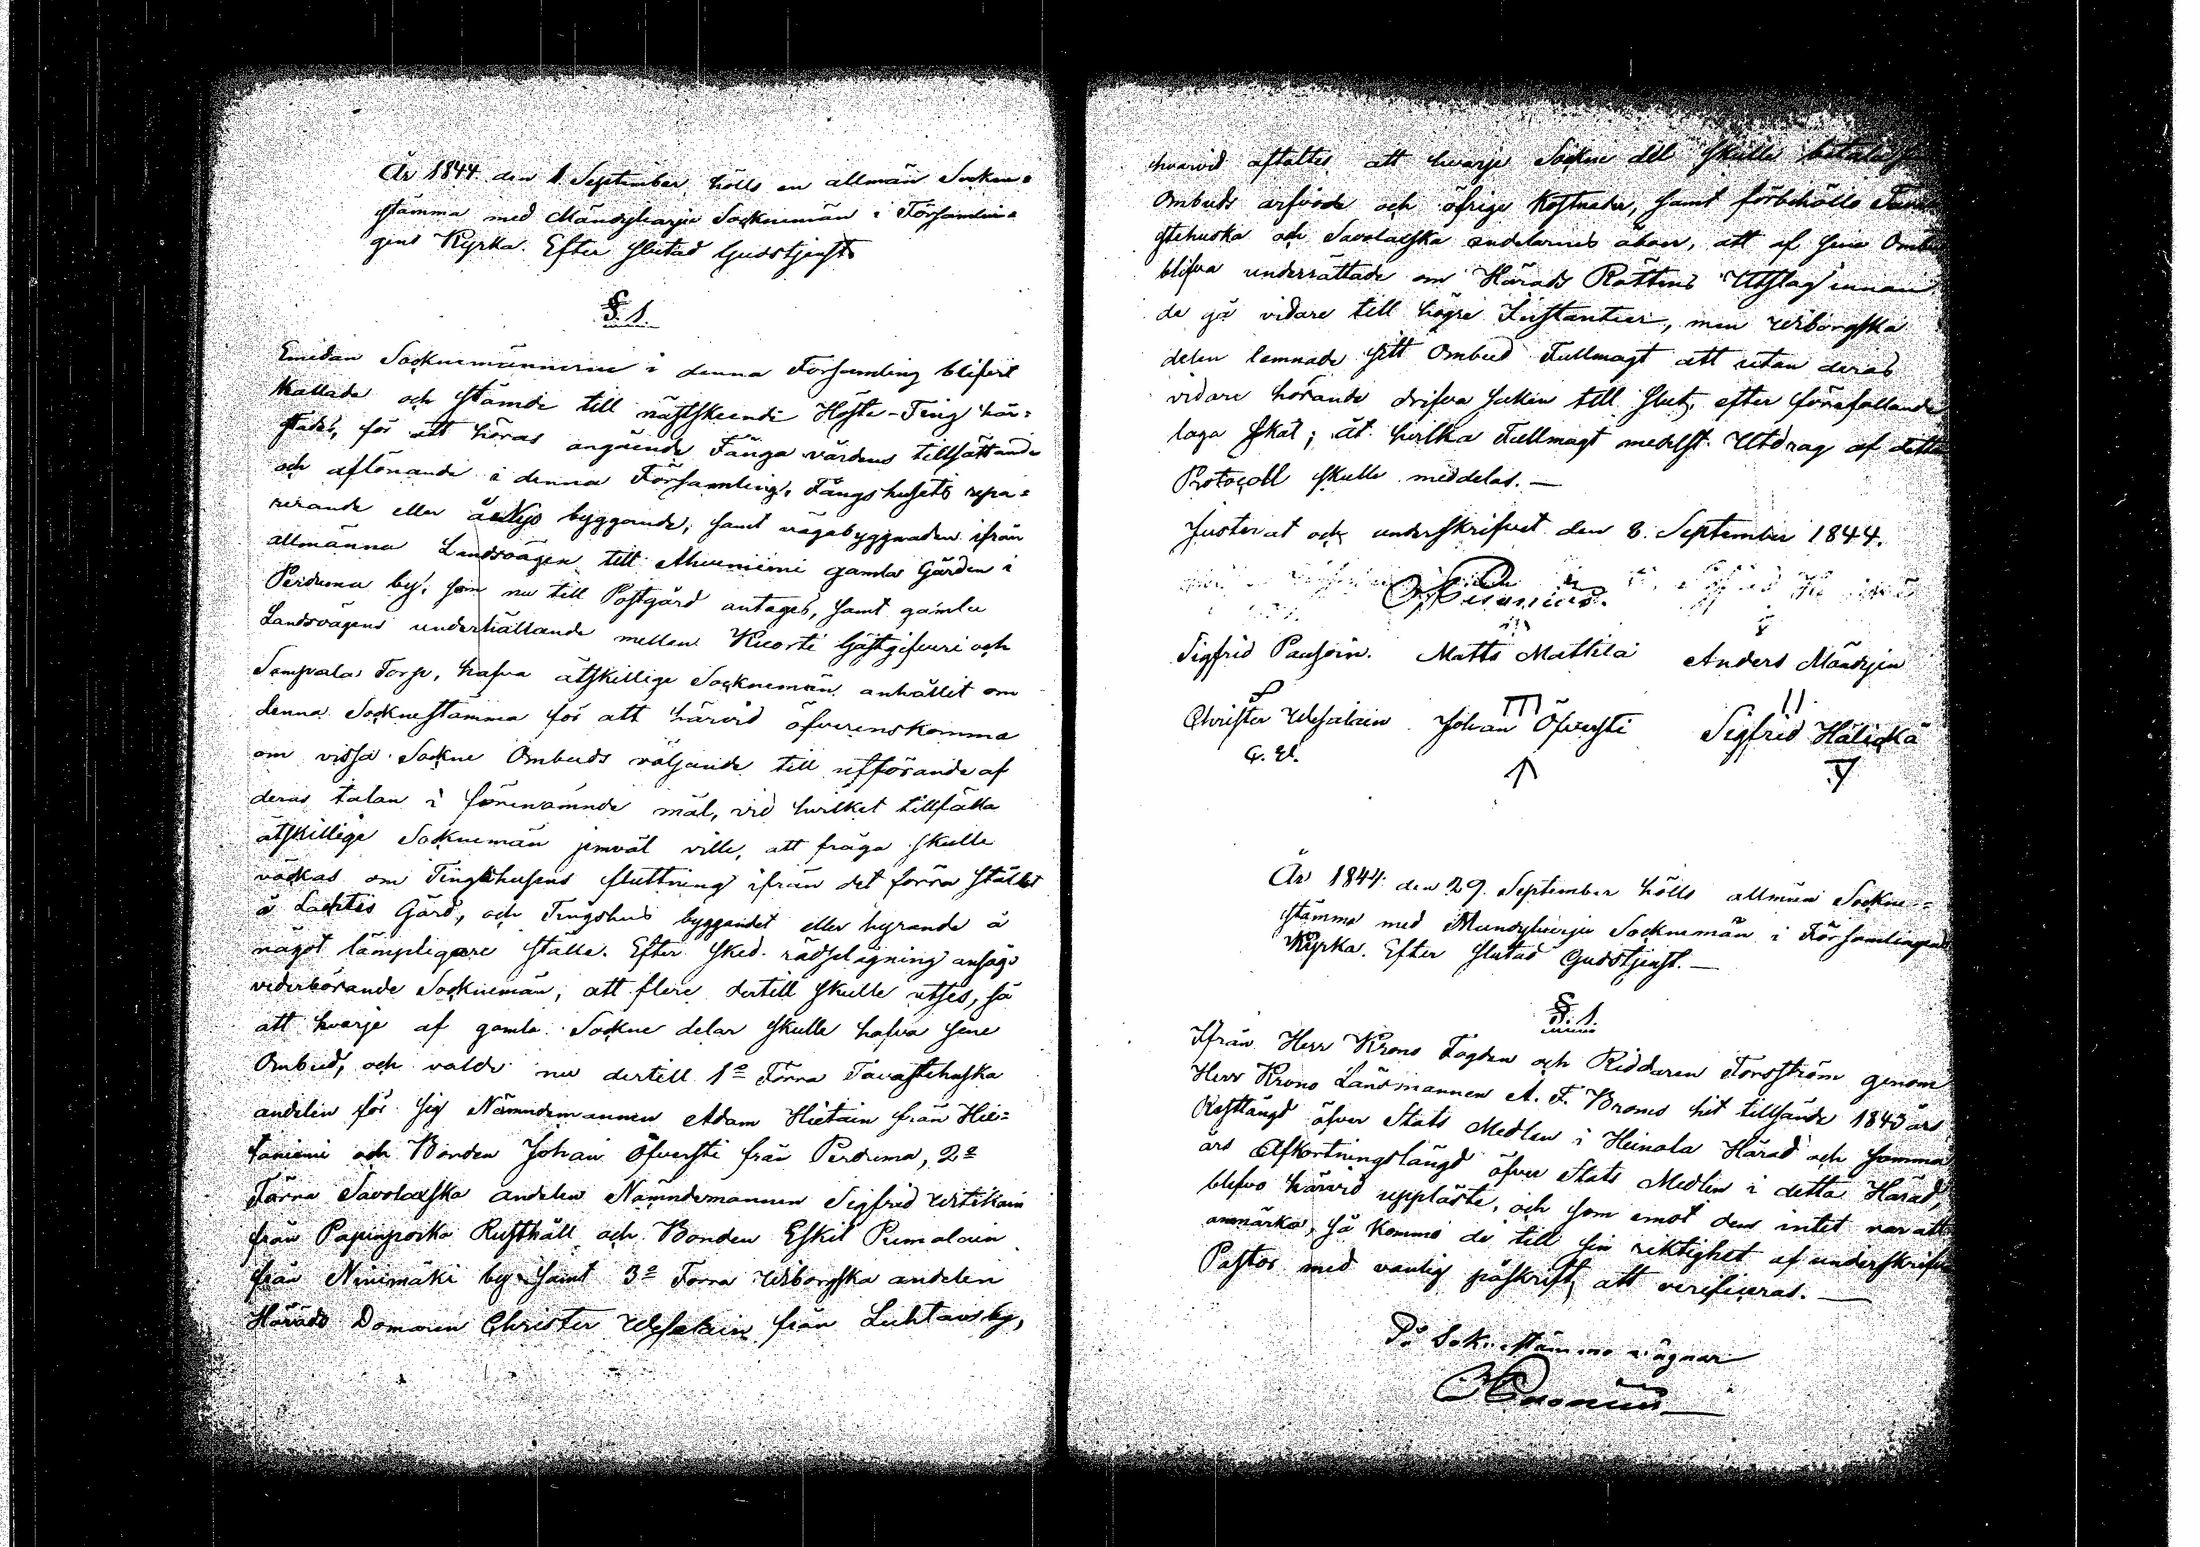 År 1844. den 1. September hölls en allmän Sockne=
stämma med Mändyharju Socknemän i Församlin=
gens Kyrka. Efter slutad Gudstjenst
§. 1.
Emedan Socknemännerne i denna Församling blifvit
Kallade och stämde till nästskeende Höste-Ting här=
städes, för att höras angående Fånga vårdens tillsättande
och aflönande i denna Församling, Fångshusets repa=
rerande eller å Nyo byggande, samt vägabyggnaden ifrån
allmänna Landsvägen till Ahvenniemi gamla Gården i
Pertuma by, som nu till Postgård antages, samt gamla
Landsvägens underhållande mellan Kuorti Gästgifveri och
Torp, hafva åtskillige Socknemän anhållit om
denna Socknestämma för att härvid öfverenskomma
om vissa Sockne Ombuds väljande till utförande af
deras talan i förenämnde mål, vid hvilket tillfälle
åtskillige Socknemän jemväl ville, att fråga skulle
väckas om Tingshusens fluttning ifrån det förra stället
å Lahtis Gård, och Tingshus byggandet eller hyrande å
något lämpligare ställe. Efter sked. rådplägning ansågo
vederbörande Socknemän, att flere dertill skulle utses, så
att hvarje af gamla Sockne delar skulle hafva sine
Ombud, och valdes nu dertill 1º Förra Tavastehuska
andelen för sig Nämndemannen Adam Hietain från Hie=
taniemi och Bonden Johan Öfversti från Pertuma, 2º
Förra Savolaxska andelen Nämndemannen Sigfrid
från Rusthåll och Bonden Eskil
från Niinimäki by samt 3º Förra Wiborgska andelen
Härads Domaren Christer från Luhtans by,
hvarvid aftaltes att hvarje Sockne del skulle
Ombuds arfvode och öfrige Kostnader, samt förbehöllo
stehuska och Savolaxska andelarnes åboer, att af sine
blifva underrättade om Härads Rättens Utslag innan
de gå vidare till högre Instantier, men Wiborgska
delen lemnade sitt Ombud Fullmagt att utan deras
vidare hörande drifva saken till slut, efter förefallande
laga skäl; åt hvilka Fullmagt medelst Utdrag af detta
Protocoll skulle meddelas. —
Justerat och underskrifvet den 8. September 1844.
Sigfrid Pausoin. Matts Mattila Anders Mändyin
Christer Johan Öfversti Sigfrid Hälickä
År 1844. den 29. September hölls allmän Sockne=
stämma med Mändyharju Socknemän i Församlingens
Kyrka. Efter slutad Gudstjenst. —
§. 1.
Ifrån Herr Krono Fogden och Riddaren Forsström genom
Herr Krono Länsmannen A. F. Broms hit tillsände 1843 års
Restlängd öfver Stats Medlen i Heinola Härad och samma
års Afkortningslängd öfver Stats Medlen i detta Härad,
blefvo härvid uppläste, och som emot dem intet var att
anmärka, så kommo de till sin riktighet af
Pastor med vanlig påskrift att verificeras. —
På Sokne stämmo vägnar